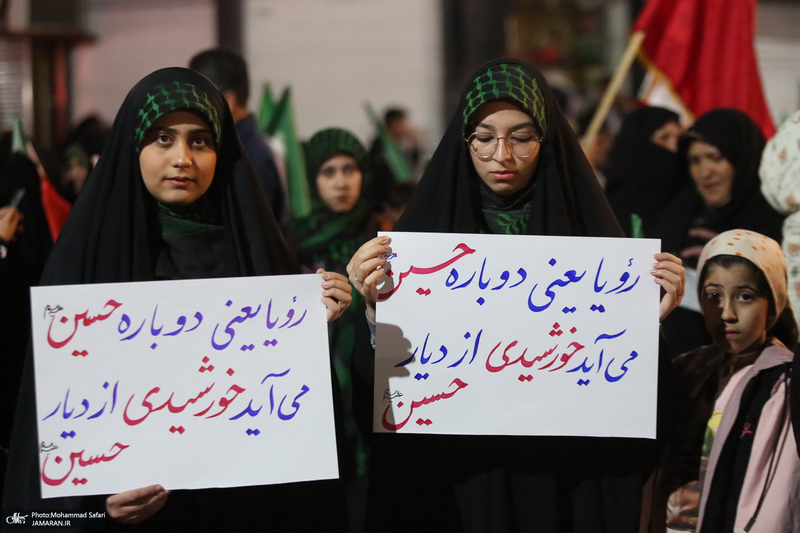 رؤیا یعنی دوباره حسین
می آید خورشیدی از دیار
حسین
رؤیا یعنی دوباره حسین
می آید خورشیدی از دیار
حسین
Photo:Mohammad Safari
JAMARAN.IR